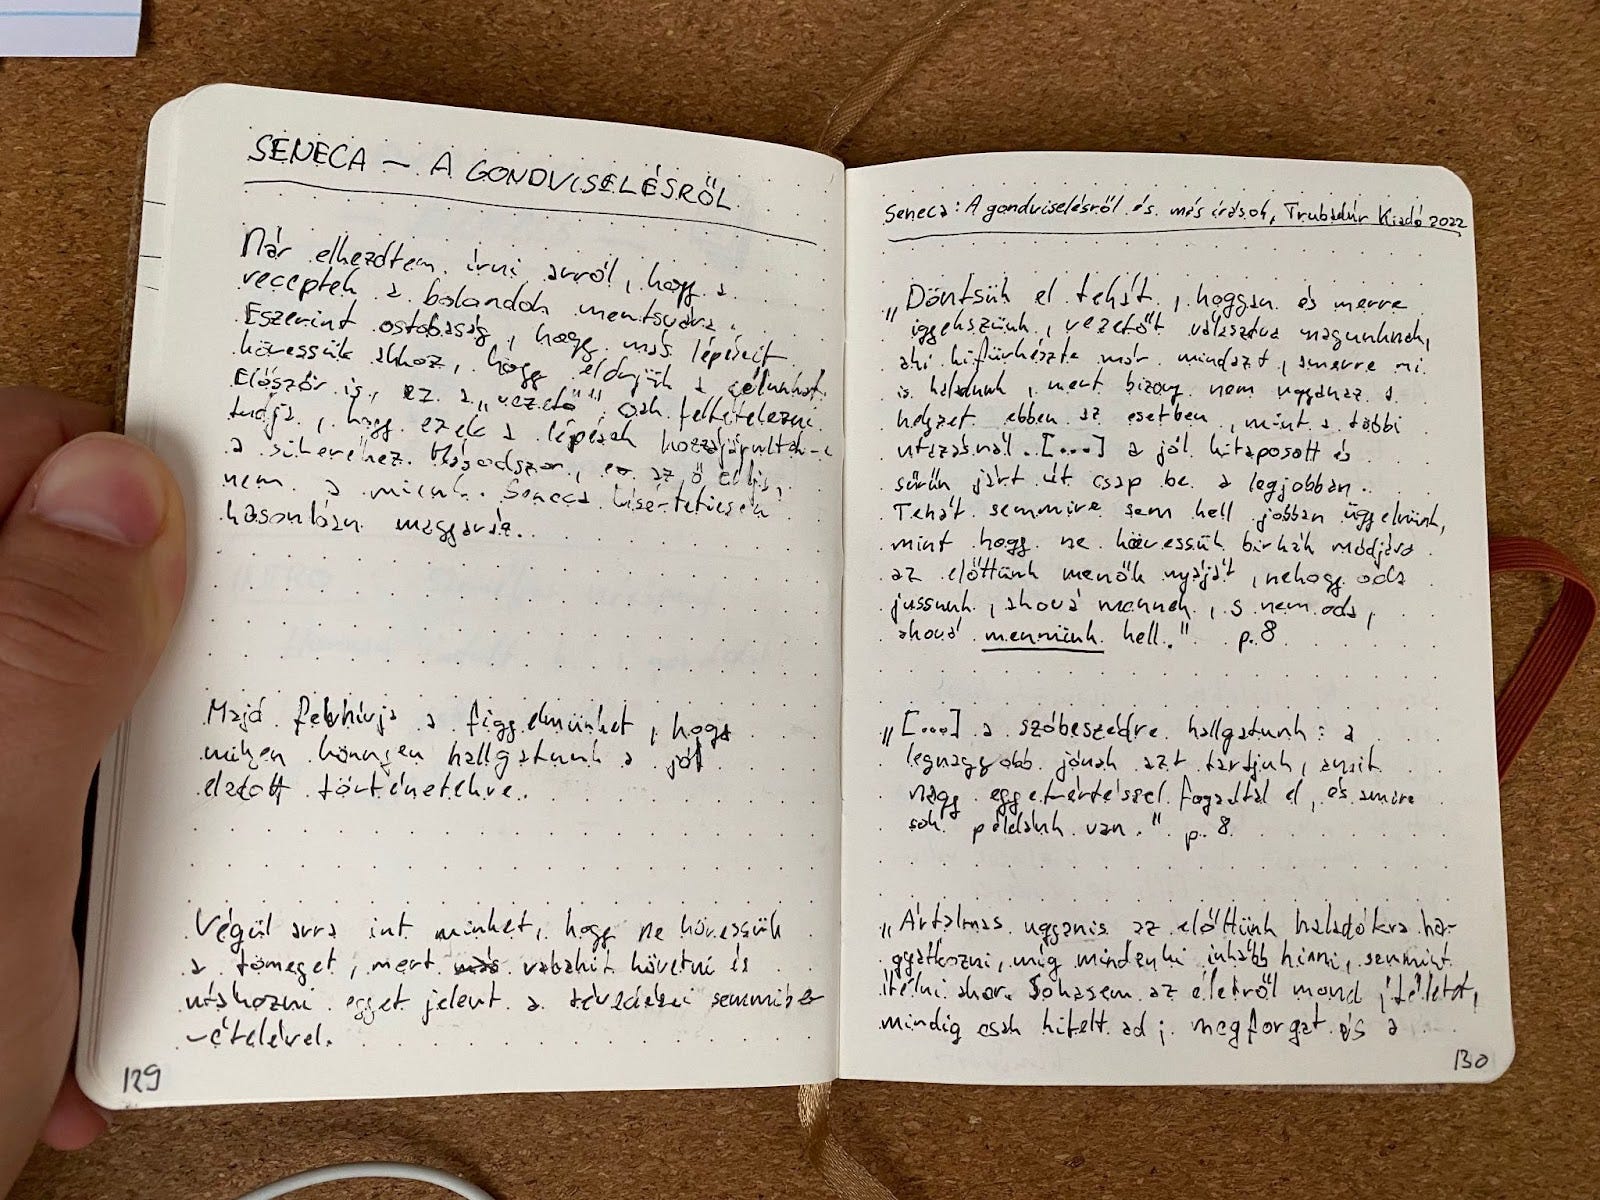 SENECA – A GONDVISELÉSRŐL
Már elkezdtem írni arról, hogy a
receptek a bolondok mentsvára.
Eszerint ostobaság, hogy más lépéseit
kövessük ahhoz, hogy elérjük a célunkat.
Először is, ez a „vezető" csak feltételezni
tudja, hogy ezek a lépések hozzájárultak-e
a sikeréhez. Másodszor, ez az ő célja,
nem a mienk. Seneca kísértetiesen
hasonlóan magyaráz.
Majd felhívja a figyelmünket, hogy
milyen könnyen hallgatunk a jól
eladott történetekre.
Végül arra int minket, hogy ne kövessük
a tömeget, mert más vabakit követni és
utánozni egyet jelent a tévedései semmibe
-vételével.
129
Seneca: A gondviselésről és más írások, Trubadúr Kiadó 2022
„Döntsük el tehát, hoggan és merre
iggekszünk, vezetőt választva magunknak,
aki kifürkészte már mindazt, amerre mi
is haladunk, mert bizony nem ugyanaz a
helyzet ebben az esetben, mint a többi
utazásnál. [...] a jól kitaposott és
sűrűn járt út csap be a legjobban.
Tehát semmire sem kell jobban ügyelnünk,
mint hogy ne kövessük birkák módjára
az előttünk menők nyáját, nehogy oda
jussunk, ahová mennek, s nem oda,
ahová mennünk kell." p. 8
„[...] a szóbeszédre hallgatunk: a
legnagyobb jónak azt tartjuk, amit
nagy egyetértéssel fogadtál el, és amire
sok példánk van." p. 8
„Ártalmas ugyanis az előttünk haladókra ha-
gyatkozni, míg mindenki inkább hinni, semmint
ítélni akar. Sohasem az életről mond ítéletet,
mindig csak hitelt ad; megforgat és a
130